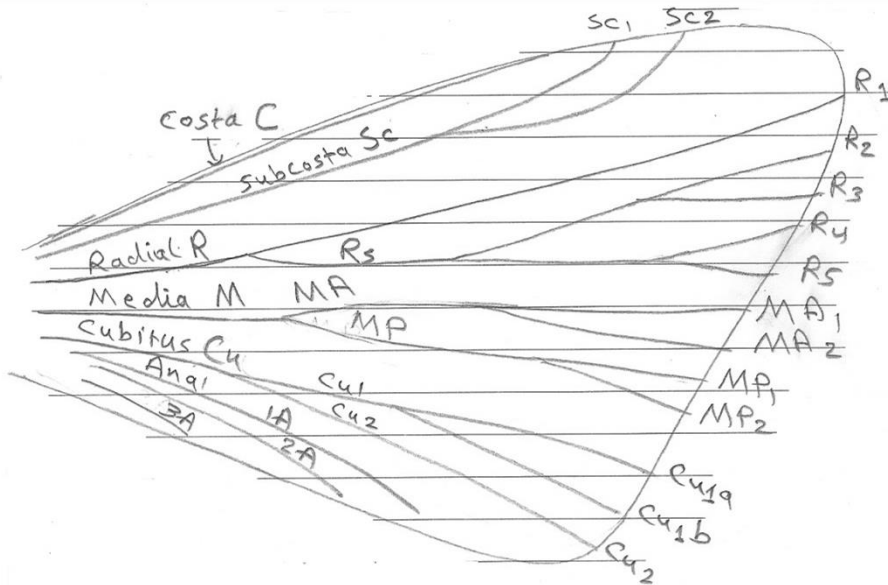 Sc1 Sc2
R1
Costa C
R2
Subcosta Sc
R3
R4
Radial R Rs
R5
Media M MA
MA1
MP
MA2
Cubitus Cu
MP1
Anal Cu1
MP2
3A 1A Cu2
2A
Cu1a
Cu1b
Cu2